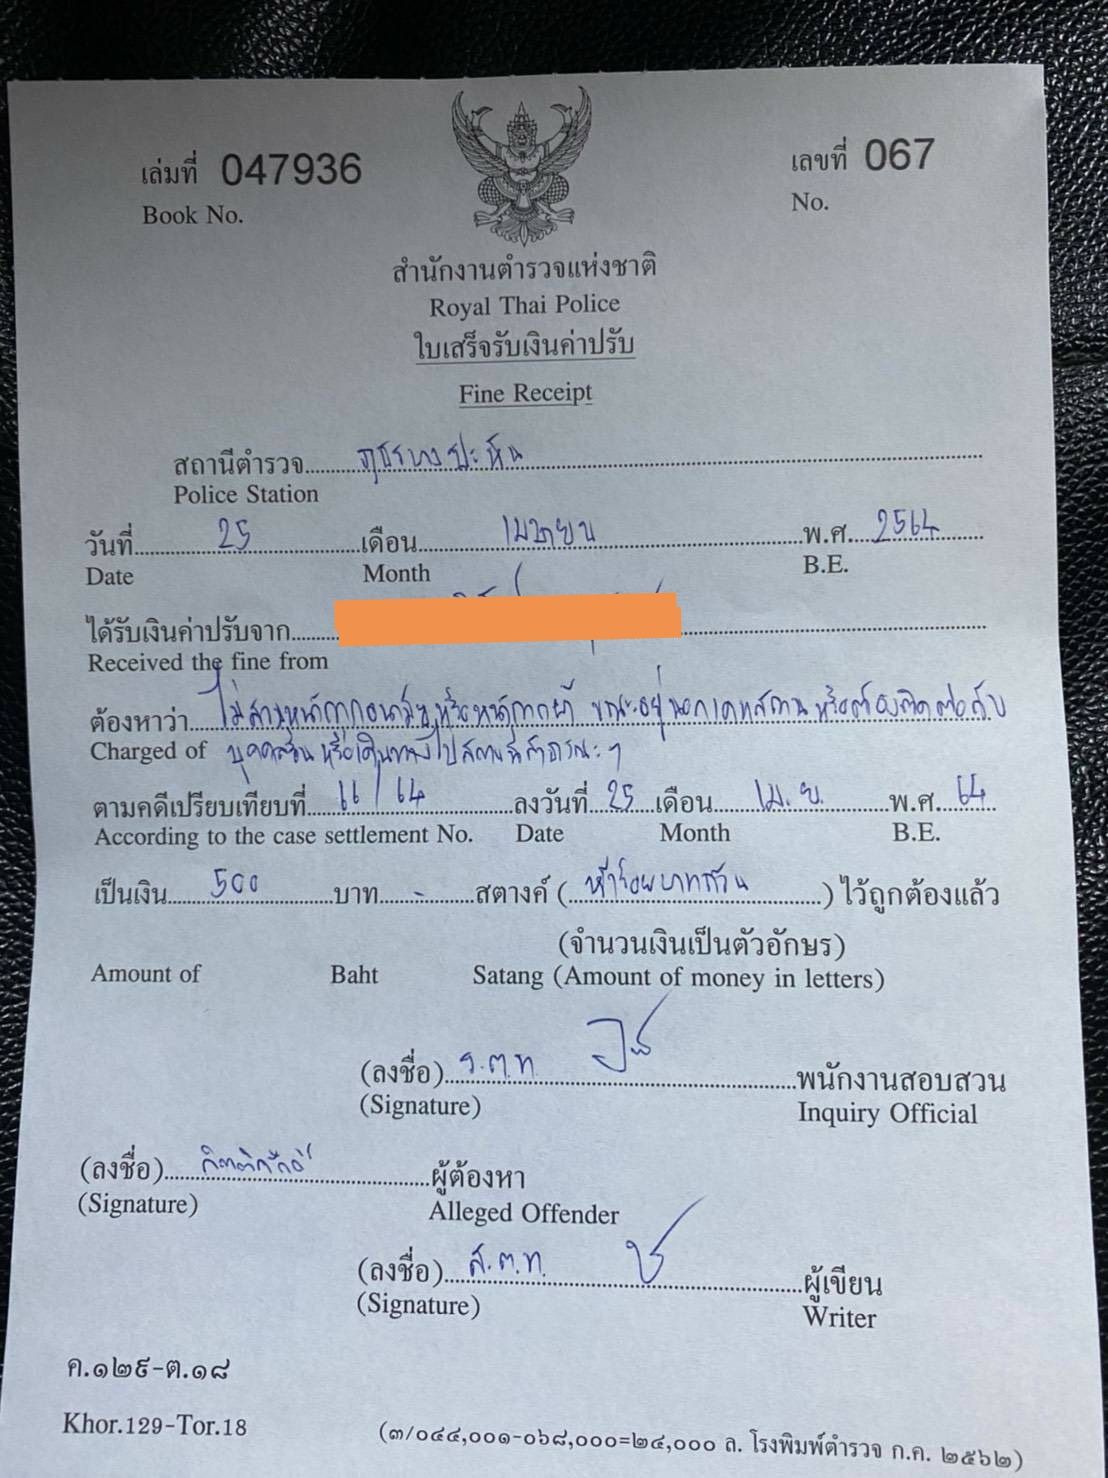 เล่มที่ 047936 เลขที่ 067
Book No. No.
สำนักงานตำรวจแห่งชาติ
Royal Thai Police
ใบเสร็จรับเงินค่าปรับ
Fine Receipt
สถานีตำรวจ ภูธรบางปะหัน
Police Station
วันที่ 25 เดือน เมษายน พ.ศ. 2564
Date Month B.E.
ได้รับเงินค่าปรับจาก
Received the fine from
ต้องหาว่า ไม่สวมหน้ากากอนามัย หรือหน้ากากผ้า ขณะอยู่นอกเคหสถาน หรือต้องติดต่อกับ
Charged of บุคคลอื่น หรือเดินทางไปสถานที่สาธารณะๆ
ตามคดีเปรียบเทียบที่ 66/64 ลงวันที่ 25 เดือน เม.ย. พ.ศ. 64
According to the case settlement No. Date Month B.E.
เป็นเงิน 500 บาท - สตางค์ (ห้าร้อยบาทถ้วน) ไว้ถูกต้องแล้ว
(จำนวนเงินเป็นตัวอักษร)
Amount of Baht Satang (Amount of money in letters)
(ลงชื่อ) ร.ต.ท. พนักงานสอบสวน
(Signature) Inquiry Official
(ลงชื่อ) กิตติศักดิ์ ผู้ต้องหา
(Signature) Alleged Offender
(ลงชื่อ) ส.ต.ท. ผู้เขียน
(Signature) Writer
ค.๑๒๙-ต.๑๘
Khor.129-Tor.18 (๓/๐๔๔,๐๐๑-๐๖๘,๐๐๐=๒๔,๐๐๐ ล. โรงพิมพ์ตำรวจ ก.ค. ๒๕๖๒)